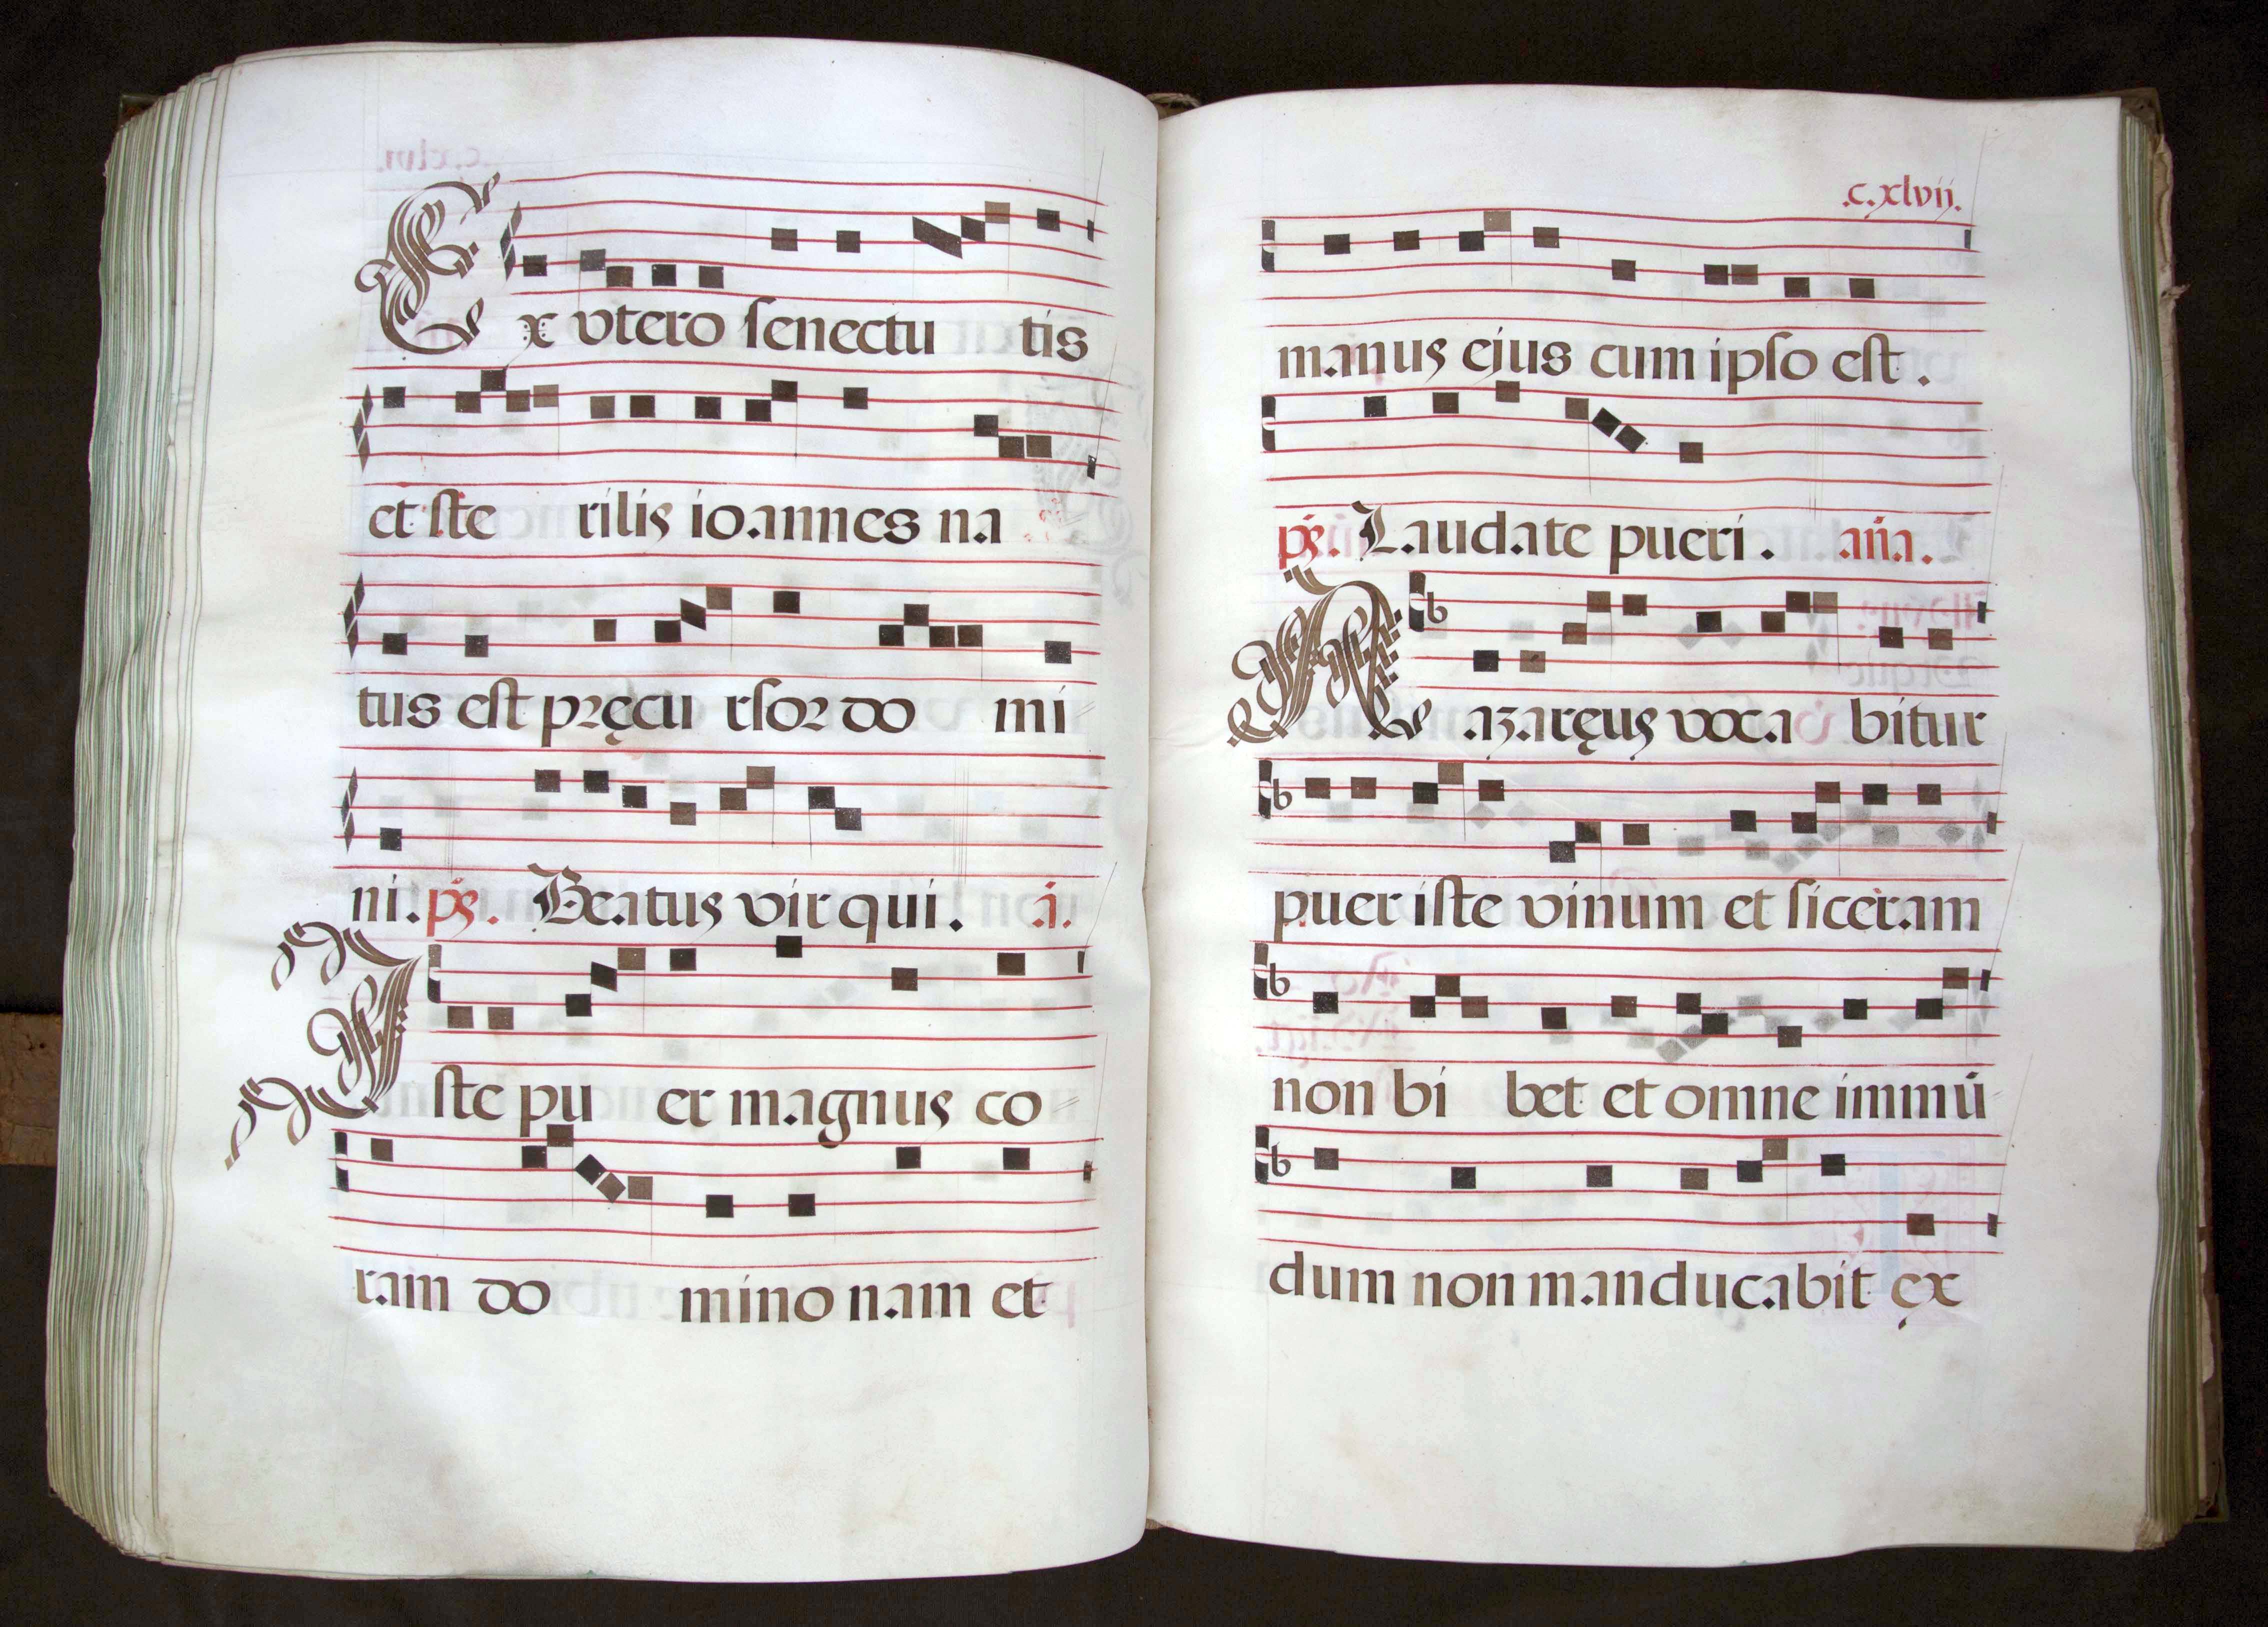 Ex vtero senectu tis
et ste rilis ioannes na
tus est pręcu rsor do mi
ni. ps. Beatus vir qui. á.
Iste pu er magnus co
ram do mino nam et
.c.xlvij.
manus ejus cum ipso est.
ps. Laudate pueri. aña.
Nazaręus voca bitur
puer iste vinum et siceram
non bi bet et omne immū
dum non manducabit ęx